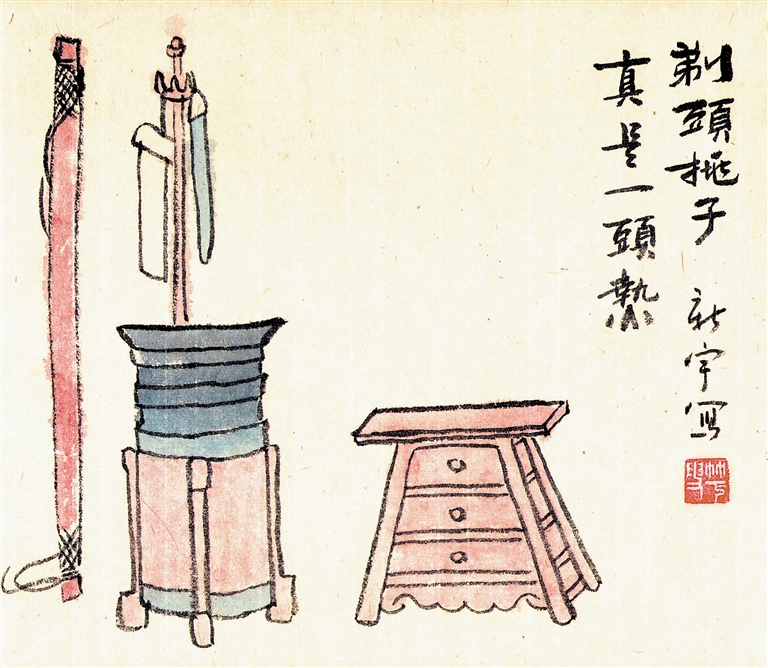 剃頭挑子 新宇寫
真是一頭熱